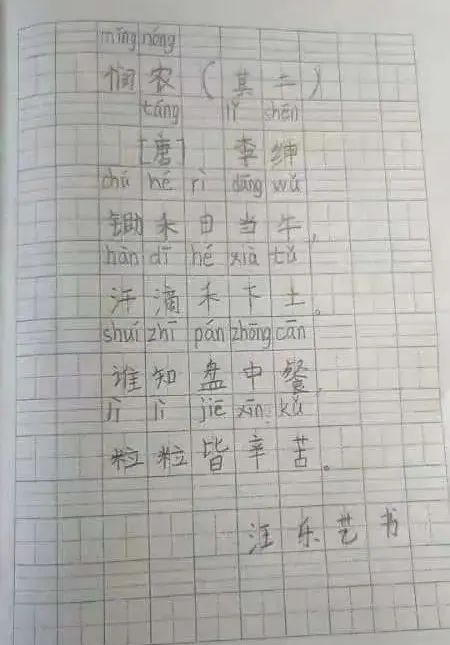 mǐng nóng
悯农（其二）
táng lǐ shēn
[唐] 李绅
chú hé rì dāng wǔ
锄禾日当午，
hàn dī hé xià tǔ
汗滴禾下土。
shuí zhī pán zhōng cān
谁知盘中餐，
lì lì jiē xīn kǔ
粒粒皆辛苦。
汪乐艺书